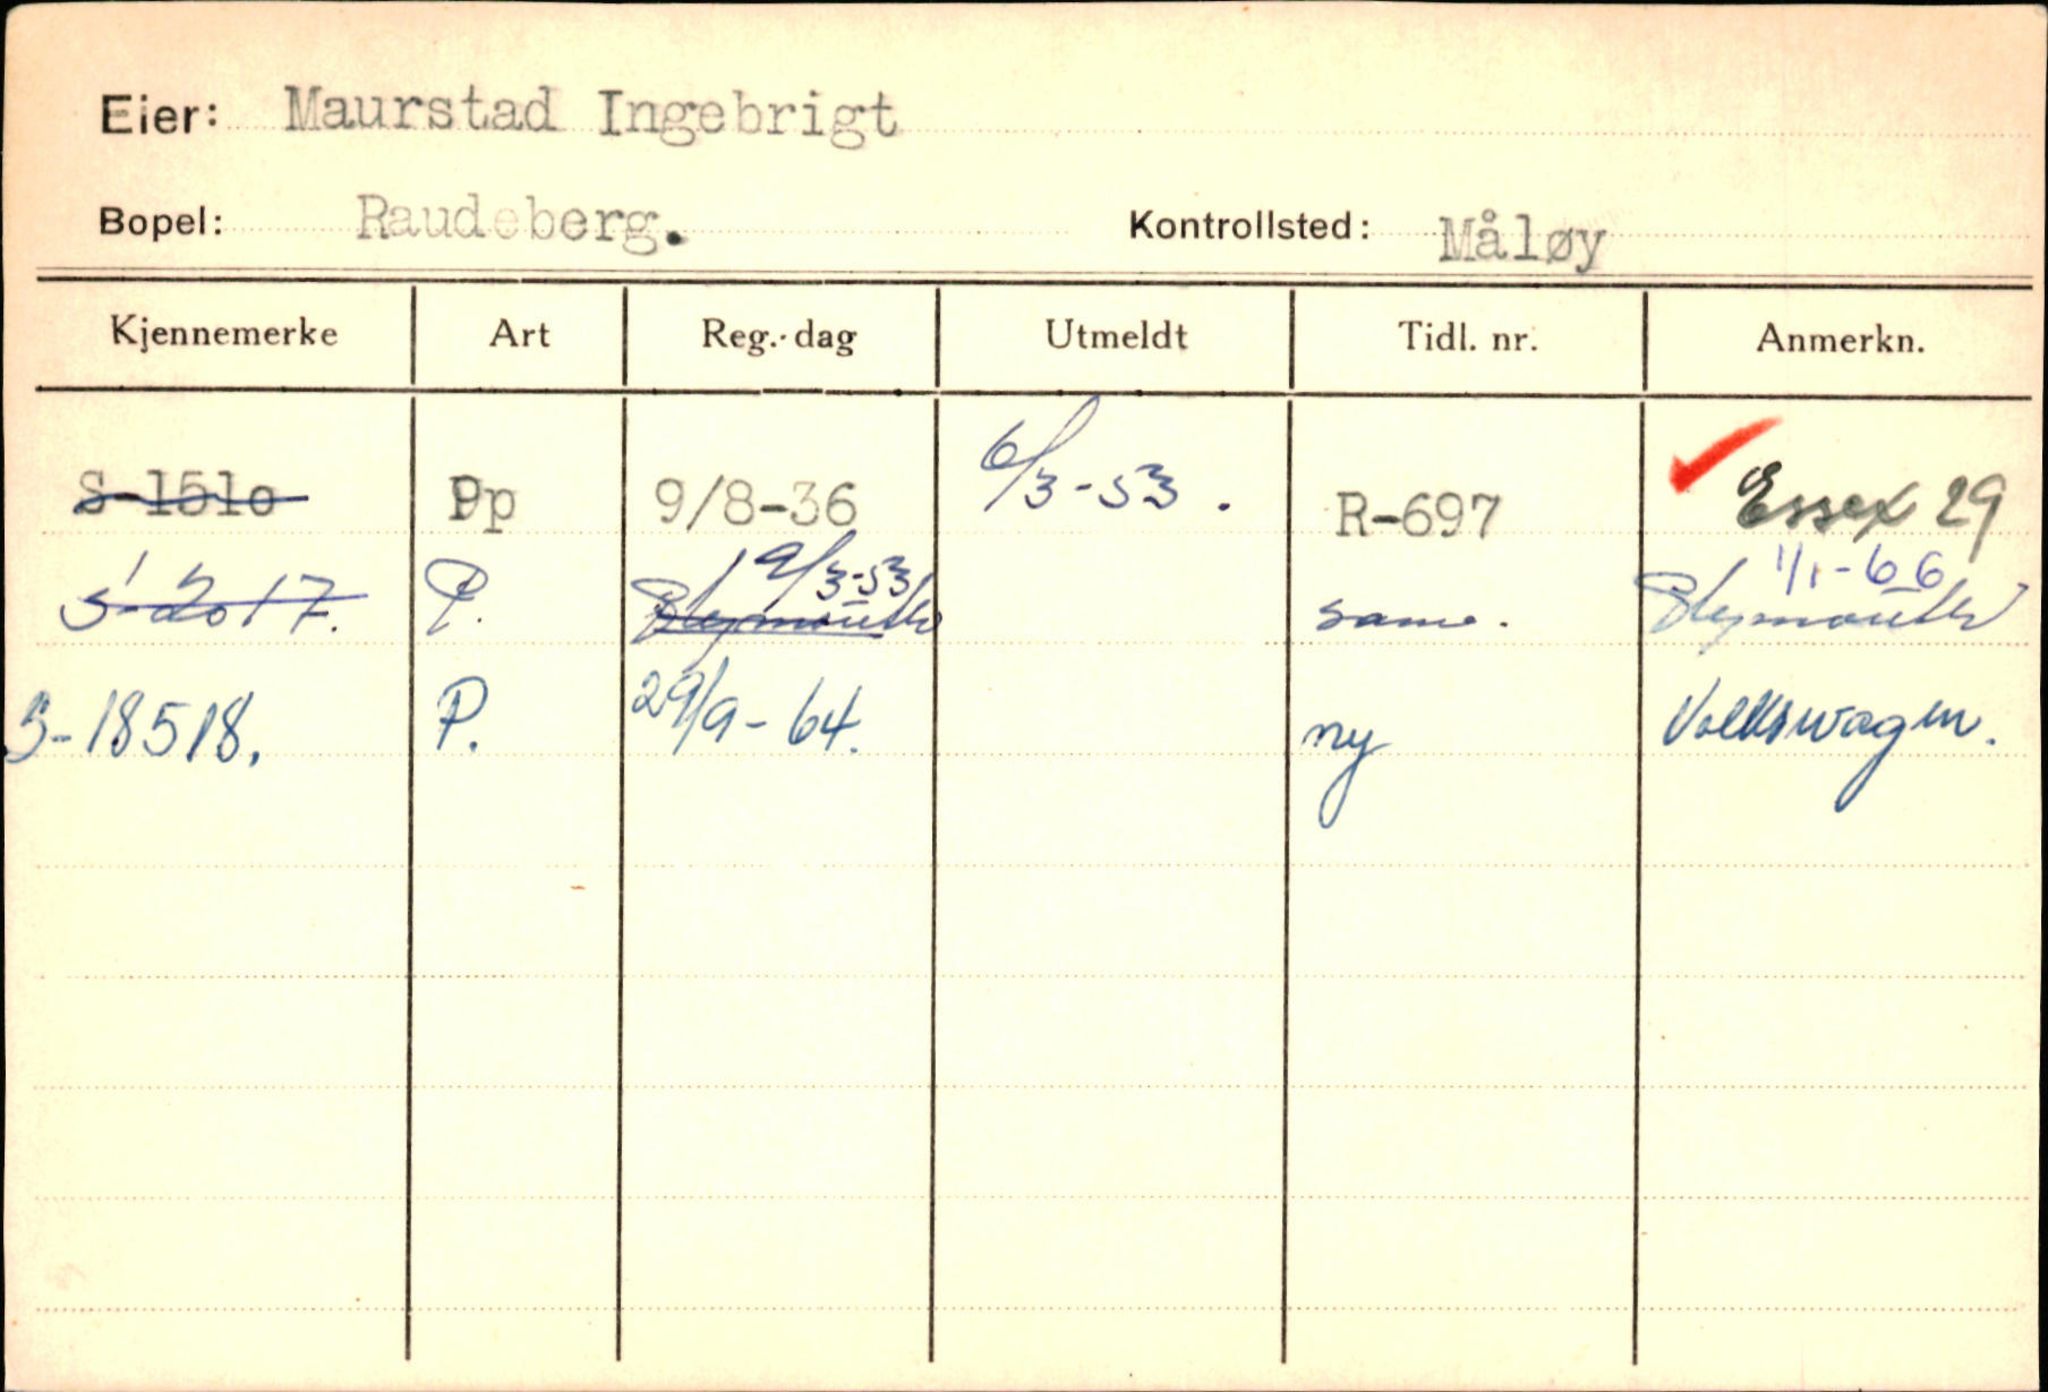 Eier: Maurstad Ingebrigt
Bopel: Raudeberg. Kontrollsted: Måløy
Kjennemerke Art Reg.-dag Utmeldt Tidl. nr. Anmerkn.
S-1510 Pp 9/8-36 6/3-53. R-697 Essex 29
19/3-53 1/1-66
S-2017. P. Plymouth same. Plymouth
S-18518. P. 29/9-64. ny Volkswagen.